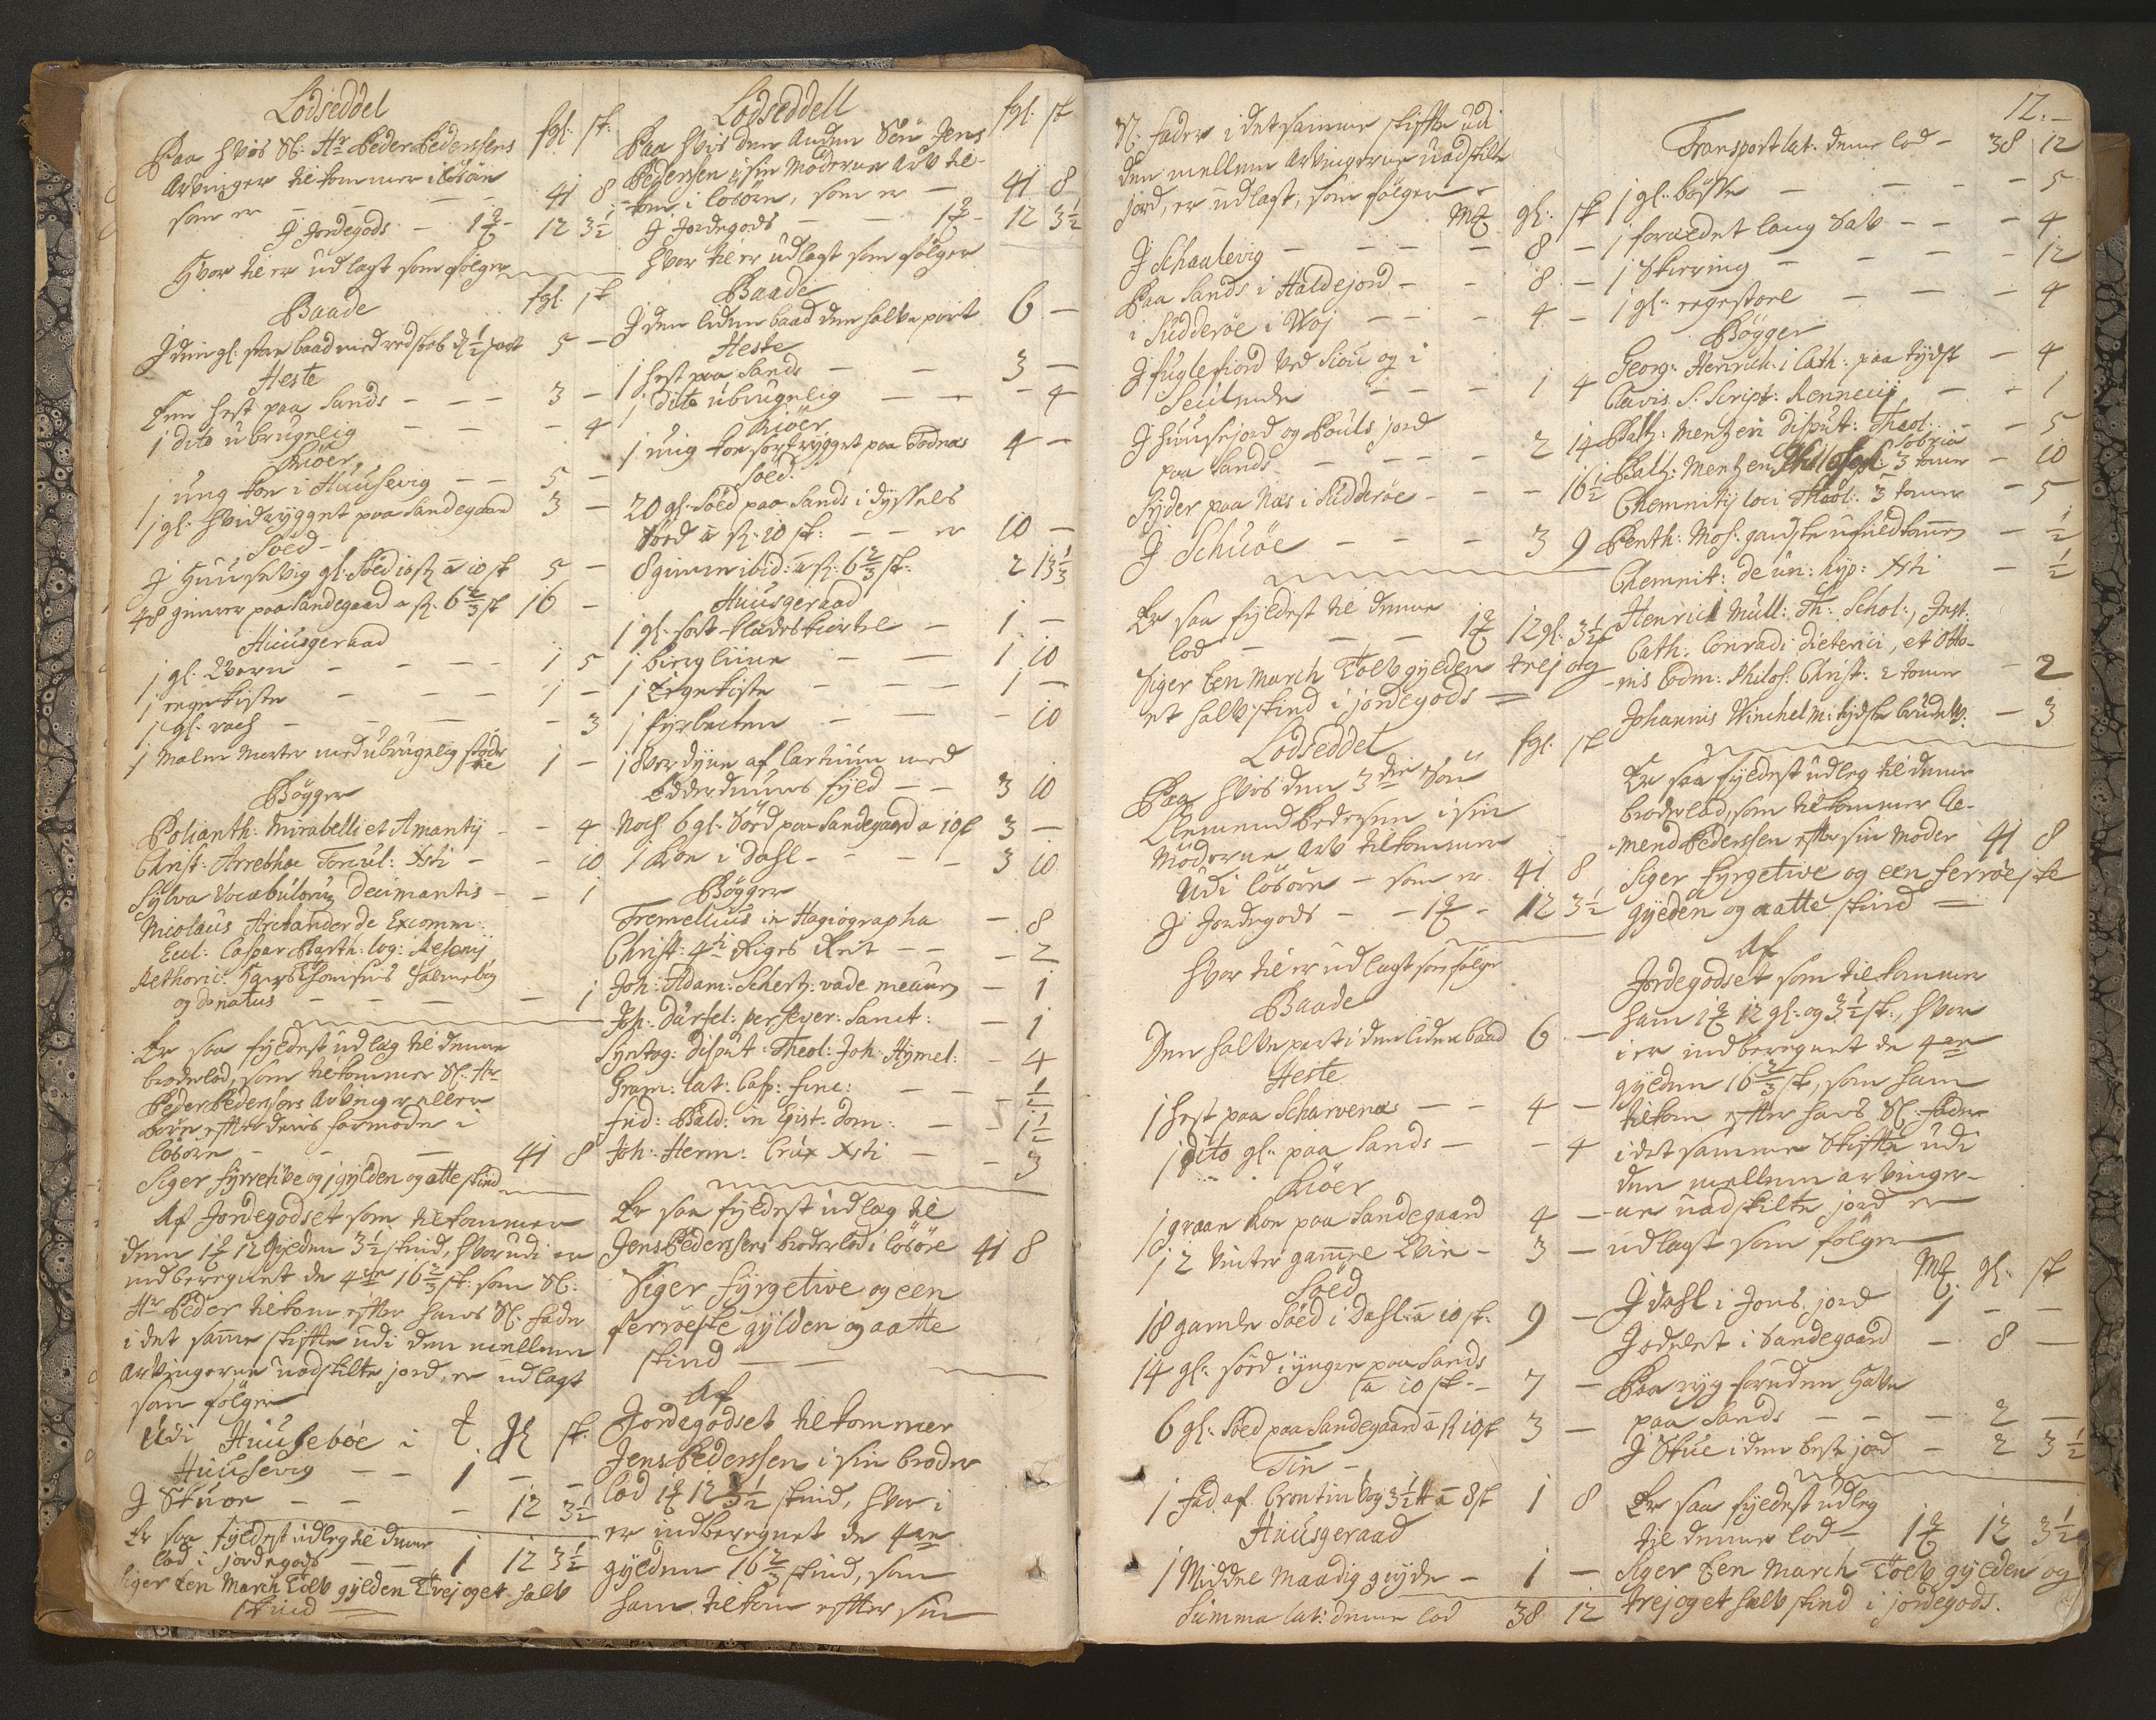 Lodseddel
fgl: sk:
Paa hvis Sl: Hr Peder Pedersens
Arvinger tilkommer i lösöre
som er — 41 8
J Jordegods — 12 3½
Hvor til er udlagt som fölger
Baade fgl: sk
J den gl: stor baad med redskab d ½ part 5 —
Heste
Een hest paa Sands — — — 3 —
1 dito ubrugelig — — — 4
Kiöer
1 ung koe i Huusevig — — 5 —
1 gl: hvidrygget paa Sandegaard 3 —
Soed —
J Huusevig gl: Söed 10 st a 10 sk 5 —
48 gimmer paa Sandegaard a st: 6⅔ sk 16 —
Huusgeraad
1 gl: Qvern — — — — 1 5
1 egekiste — — — 1 —
1 gl: rach — — — 3
1 Malm Morter med ubrugelig stöder 1 —
Bögger
Polianth: Mirabelli et Amantij — — 4
Christ: Arrebhoe Torcul: Xsti — — 10
Sylva Vocabulorum Decimantis — — 1
Nicolaus Aretander de Excomm:
Eccl: Caspar Barth: log:
Rethoric: Thomsens Salmebog
og donatus — — — — 1
Er saa fyldest udlæg til denne
broderlod, som tilkommer Sl: Hr
Peder Pedersens Arvinger eller
börn effter deris farmoder i
lösöre — — — 41 8
Siger fyrretive og 1 gylden og otte skind
Af Jordegodset som tilkommer
dem 12 Gylden 3½ skind, hvorudi er
indberegnet de 4re 16⅔ sk: som Sl:
Hr Peder tilkom effter hans Sl: fader
i det samme skiffte udi den mellem
Arvingerne uadskilte jord, er udlagt
som fölger
Udi Huuseböe i gl sk:
Huusevig — — 1 — —
J Skuoe — — — 12 3½
Er saa fyldest udleg til denne
lod i jordegods — — 1 12 3½
Siger Een March Tolv gylden Trej og et halv
skind
Lodseddell
fgl: sk
Paa hvis den Anden Sön Jens
Pedersen i sin Möderne Arv til-
kom i lösöre, som er — 41 8
J Jordegods — — 12 3½
hvor til er udlagt som fölger
Baade
J den liden baad den halve part 6 —
Heste
1 hest paa Sands — — 3 —
1 dito ubrugelig — — — 4
Kiöer
1 ung koe sortrygget paa Todnæs 4 —
Soed.
20 gl: Söed paa Sands i dyssels
Söed a st: 10 sk: — — er 10 —
8 gimmer ibid: a st: 6⅔ sk: 2 13⅓
Huusgeraad
1 gl: sort klædeskiortel — 1 —
1 bierg liine — — 1 10
1 Egekiste — — — 1 —
1 fyrbecken — — — 10
1 Overdyne af Cartuun med
Edderduuns fyld — — 3 10
Noch 6 gl: Söed paa Sandegaard a 10 sk 3 —
1 Koe i Dahl — — — 3 10
Bögger
Tremellius in Hagiographa — 8
Christ: 4ti Riges Ret — — 2
Joh: Adam: Schertz: vade mecum — 1
Joh: Dürfel: persever: Sanct: — 1
Syntag: Disput: Theol: Joh: Hymel: — 4
Gram: lat: Casp: finc: — — ½
frid: Bald: in Epist: Dom: — — 1½
Joh: Herm: Crux Xsti — — 3
Er saa fyldest udlæg til
Jens Pedersens broderlod i lösöre 41 8
Siger fyrgetive og een
ferröeske gylden og aatte
skind — —
Af
Jordegodset tilkommer
Jens Pederssen i sin broder
lod 12 3½ skind, hvor i
er indberegnet de 4re
gylden 16⅔ skind, som
ham tilkom effter sin
Sl: fader i det samme skiffte udi
den mellem Arvingerne uadskilte
jord, er udlagt, som fölger —
gl: sk
J Schaalevig — — — 8 —
Paa Sands i Haldejord — — 8 —
i Sudderöe i Woj — — — 4 —
J fuglefiord ved Siou og i
— — — 1 4
J huusejord og Pouls jord
paa Sands — — — 2 14
Syder paa Næs i Sudderöe — — — 16½
J Schuöe — — — 3 9
Er saa fyldest til denne
lod — — — 12 gl: 3½ sk
Siger Een March Tolv gylden trej og
et halv skind i jordegods —
Lodseddel
fgl: sk
Paa hvis den 3die Sön
Clemend Pedersen i sin
Möderne Arv tilkommer
Udi lösöre — som er 41 8
J Jordegods — — 12 3½
hvor til er udlagt som fölger
Baade
Den halve part i den liden baad 6 —
Heste
1 hest paa Scharvenæs — — 4 —
1 dito gl: paa Sands — — 4
Kiöer
1 graae koe paa Sandegaard 4 —
1 2 Vinter gammel Qvie — 3 —
Soed
18 gamle Söed i Dahl a 10 sk: 9 —
14 gl: söed i yngre paa Sands
a 10 sk — 7 —
6 gl: Söed paa Sandegaard a st 10 sk 3 —
Tin —
1 fad af Crontin 3½ a 8 sk 1 8
Huusgeraad
1 Middel Maadig gryde — 1 —
Summa lat: denne lod 38 12
12. —
Transport lat: denne lod — 38 12
1 gl: bösse — — — — 5
1 foraeldet laug — — — 4
1 Skiering — — — — 12
1 gl: egestoel — — — 4
Bögger
Georg: Henrich: i Cath: paa tydsk — 4
Clavis S: Script: Rennecij — — 1
Balth: Mentzeri disput: Theol: — — 5
Balth: Mentzeri Sobria 3 tomer — 10
Chemnitij loci Theol: 3 tomer — 5
Penth: Mos: gandske ufuldkommen — ½
Chemnit: de un: hyp: Xsti — ½
Henrici Müll: Th: Schol:, Inst:
Cath: Conradi Dieterici, et Otto-
nis Cosm: Philos: Christ: 2 tomer — 2
Johannis Winchelm: tydske — 3
Er saa fyldest udleg til denne
broderlod, som tilkommer Cle-
mend Pederssen effter sin Moder 41 8
Siger fyrgetive og een ferröejske
gylden og aatte skind —
Af
Jordegodset som tilkommer
ham 12 gl: og 3½ sk:, hvor
i er indberegnet de 4re
gylden 16⅔ sk, som ham
tilkom effter hans Sl: fader
i det samme Skiffte udi
den mellem arvinger-
ne uadskilte jord er
udlagt som fölger
gl: sk
J dahl i Jons jord 1 — —
Jodelest i Sandegaard — 8 —
Paa ryg foruden Gave
paa Sands — — — 2 —
J Skue i dem beste jord — 2 3½
Er saa fyldest udleg
til denne lod — 12 3½
Siger Een March Tolv gylden og
trej og et halv skind i jordegods.